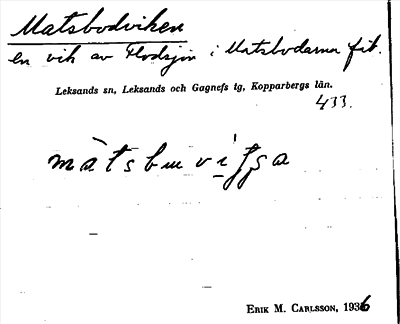 Matsbodviken
en vik av Flodsjön i Matsbodarna fäb.
Leksands sn, Leksands och Gagnefs tg, Kopparbergs län.
433.
Erik M. Carlsson, 1936